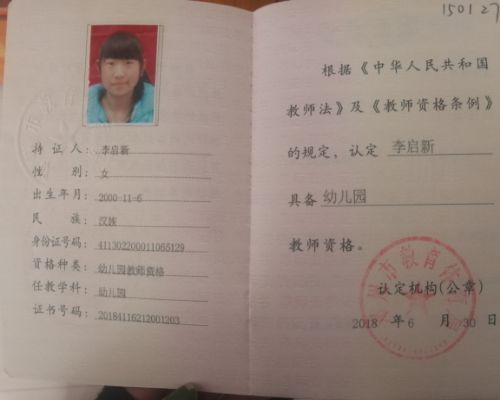 持证人： 李启新
性别： 女
出生年月： 2000-11-6
民族： 汉族
身份证号码： 411302200011065129
资格种类： 幼儿园教师资格
任教学科： 幼儿园
证书号码： 20184116212001203
150127
根据《中华人民共和国
教师法》及《教师资格条例》
的规定，认定 李启新
具备 幼儿园
教师资格。
认定机构(公章)
2018 年 6 月 30 日